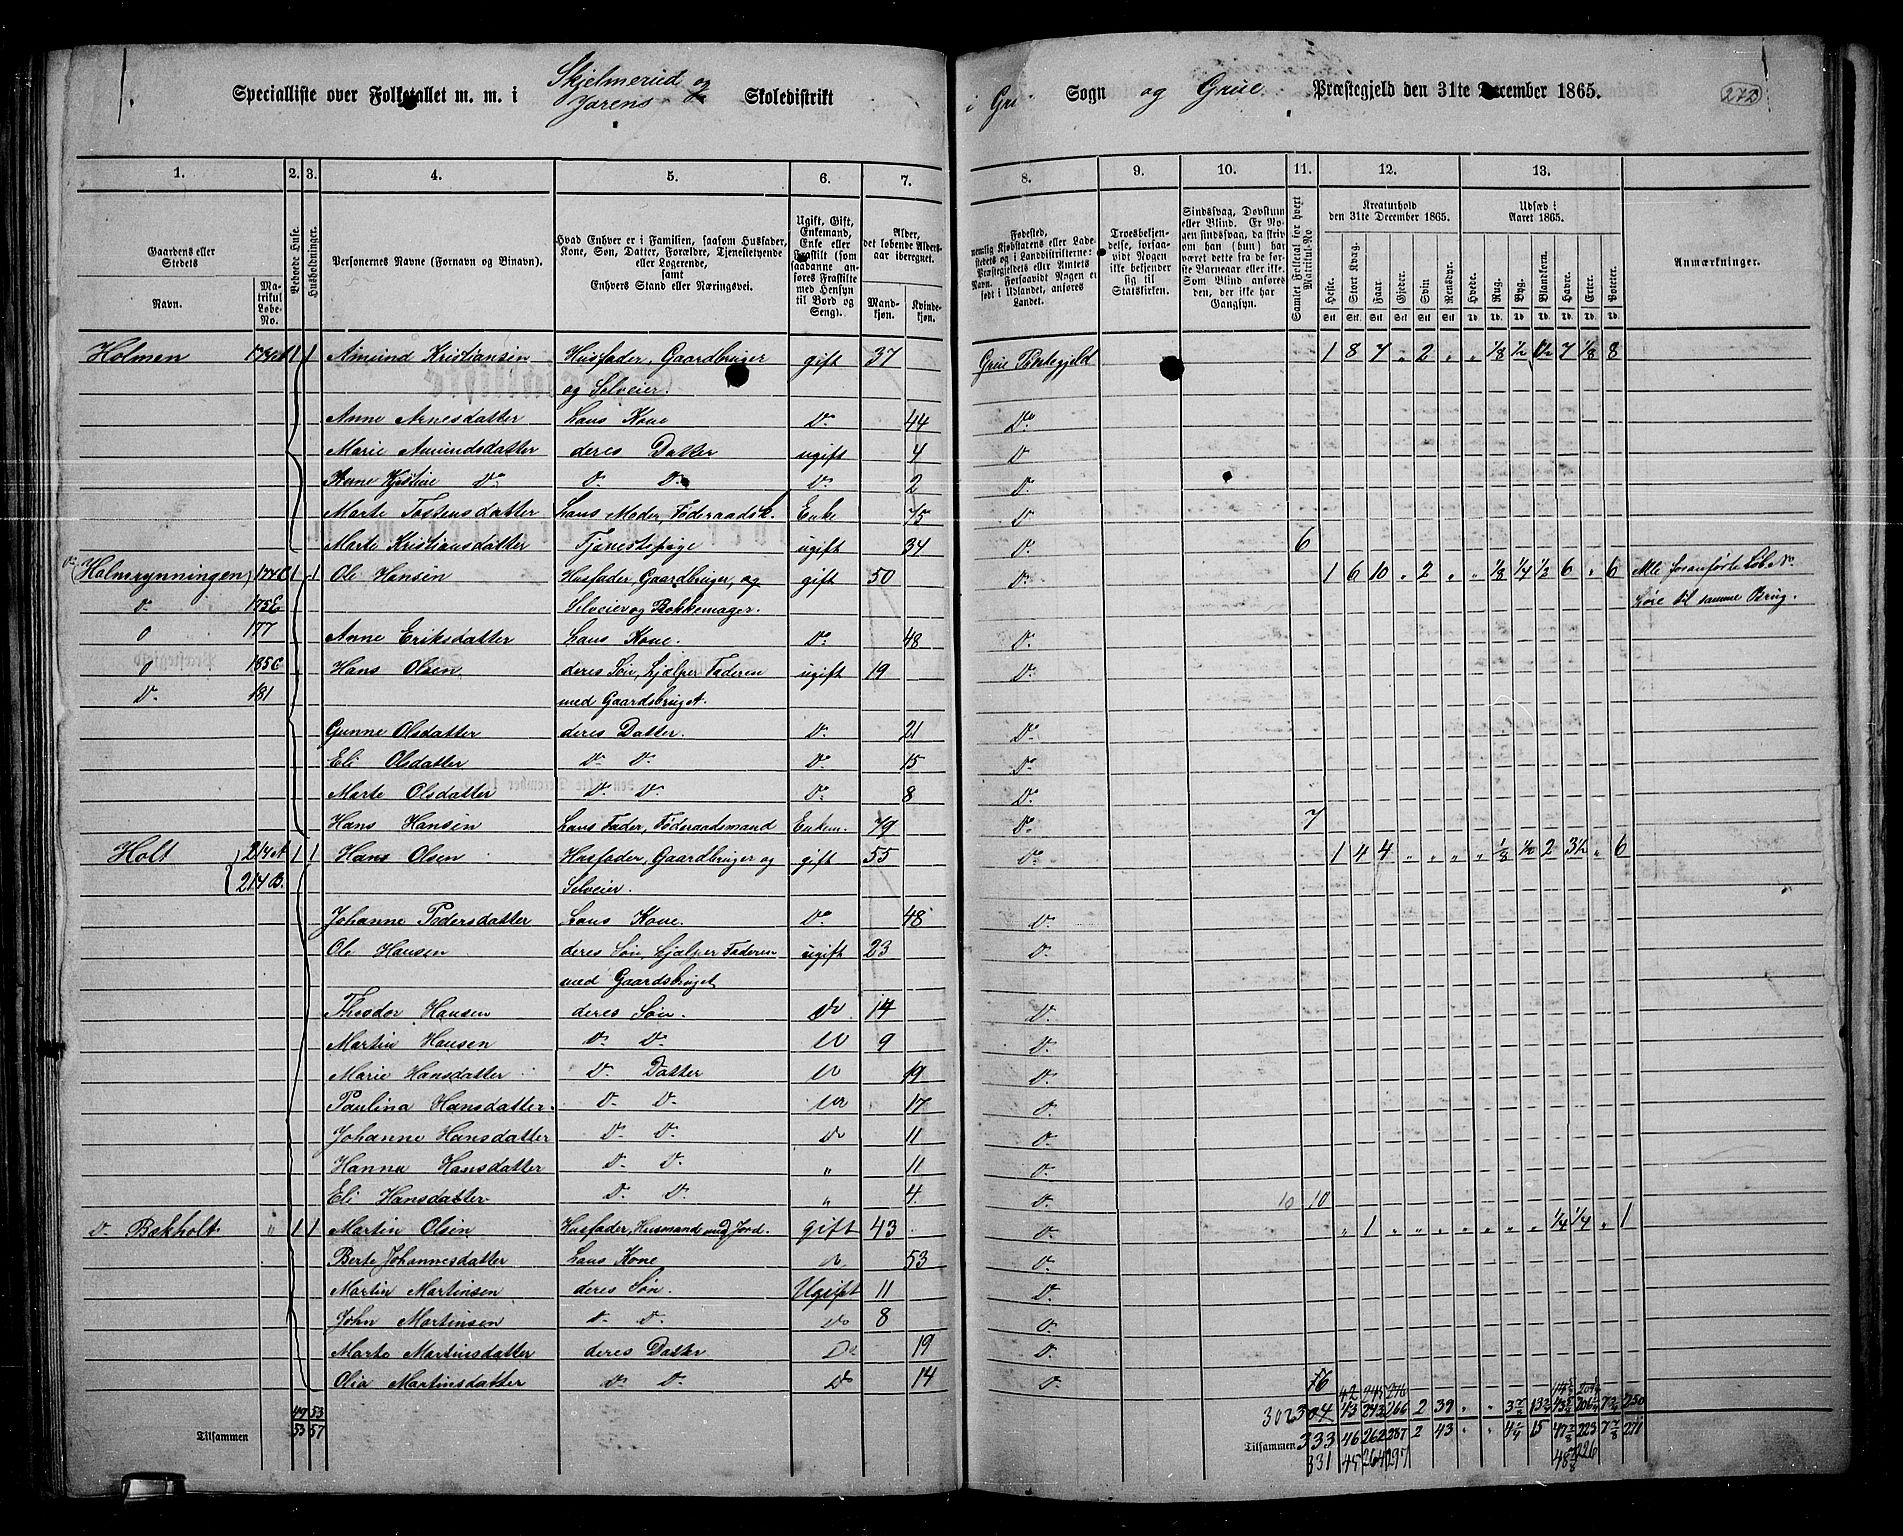 Skjelmerud og
Specialliste over Folketallet m. m. i Jarens Skoledistrikt i Gru Sogn og Grue Præstegjeld den 31te December 1865. 272
1. 2. 3. 4. 5. 6. 7. 8. 9. 10. 11. 12. 13.
Gaardens eller Stedets
Navn.
Matrikul Løbe-No.
Beboede Huse.
Husholdninger.
Personernes Navne (Fornavn og Binavn).
Hvad Enhver er i Familien, saasom Husfader,
Kone, Søn, Datter, Forældre, Tjenestetyende
eller Logerende,
samt
Enhvers Stand eller Næringsvei.
Ugift, Gift,
Enkemand,
Enke eller
Fraskilt (som
saadanne anføres Fraskilte
med Hensyn
til Bord og
Seng).
Alder,
det løbende Aldersaar iberegnet.
Mandkjøn.
Kvindekjøn.
Fødested,
nemlig Kjøbstadens eller Ladestedets og i Landdistrikterne:
Præstegjeldets eller Amtets
Navn. Forsaavidt Nogen er
født i Udlandet, anføres
Landet.
Troesbekjendelse, forsaavidt Nogen
ikke bekjender
sig til
Statskirken.
Sindssvag, Døvstum
eller Blind. Er Nogen sindssvag, da skrives om han (hun) har
været dette fra de første Barneaar eller ikke.
Som Blind anføres
den, der ikke har
Gangsyn.
Samlet Folketal for hvert Matrikul-No
Kreaturhold
den 31te December 1865.
Heste. Stort Kvæg. Faar. Gjeder. Svin. Rensdyr.
Udsæd i
Aaret 1865.
Hvede. Rug. Byg. Blandkorn. Havre. Erter. Poteter.
Anmærkninger.
Holmen 1 1 Amund Kristiansen Husfader, Gaardbruger gift 37 Grue Præstegjeld 1 8 7 „ 2 „ „ 1/8 1/2 7 1/8 8
og Selveier.
Anne Arnesdatter hans Kone Do 44 Do
Marie Amundsdatter deres Datter ugift 4 D
Do Do Do 2 D.
Marte Tostensdatter hans Moder, Føderaadsk. Enke 75 D
Marte Kristiansdatter Tjenestepige ugift 34 D. 6
Do (Holmrynningen) 174C 1 1 Ole Hansen Husfader, Gaardbruger, og gift 50 D. 1 6 10 „ 2 „ „ 1/8 1/4 1/2 6 „ 6 Alle foranførte Løb No
Do 175E Selveier og Bøkkemager. høre til samme Brug.
D 177 Anne Eriksdatter hans Kone. Do 48 D.
D 185C Hans Olsen deres Søn, hjælper Faderen ugift 19 D.
Do 181 med Gaardsbruget.
Gunne Olsdatter deres Datter. Do 21 D.
Eli Olsdatter Do Do Do 15 D.
Marte Olsdatter Do Do Do 8 D.
Hans Hansen hans Fader, Føderaadsmand Enkem. 79 D. 7
Holt 214A 1 1 Hans Olsen Husfader, Gaardbruger og gift 55 D. 1 4 4 „ „ „ „ 1/8 2 3 1/2 „ 6
214B. Selveier.
Johanne Pedersdatter hans Kone. Do 48 D.
Ole Hansen deres Søn hjælper Faderen ugift 23 D.
med Gaardsbruget
Theodor Hansen deres Søn. Do 14 D.
Martin Hansen Do Do Do 9 D.
Marie Hansdatter Do Datter Do 19 D.
Paulina Hansdatter Do Do Do 17 D.
Johanne Hansdatter Do Do Do 11 D.
Hanna Hansdatter Do Do „ 11 D.
Eli Hansdatter Do Do „ 4. D. 10 10
Do Bakholt „ 1 1 Martin Olsen Husfader, Husmand med Jord. gift 43 D. „ 1 „ „ „ „ „ „ 1/4 1/4 „ 1
Berte Johannesdatter hans Kone Do 53 D.
Martin Martinsen deres Søn. Ugift 11 D.
John Martinsen Do Do Do 8 D.
Marte Martinsdatter deres Datter Do 19 D.
Olia Martinsdatter Do Do Do 14 D.
49 53
Tilsammen 53 57
302 304 43 243 266 2 39
Tilsammen 333 46 262 287 2 43 „ „ 15 223 271
331 45 264 295 226